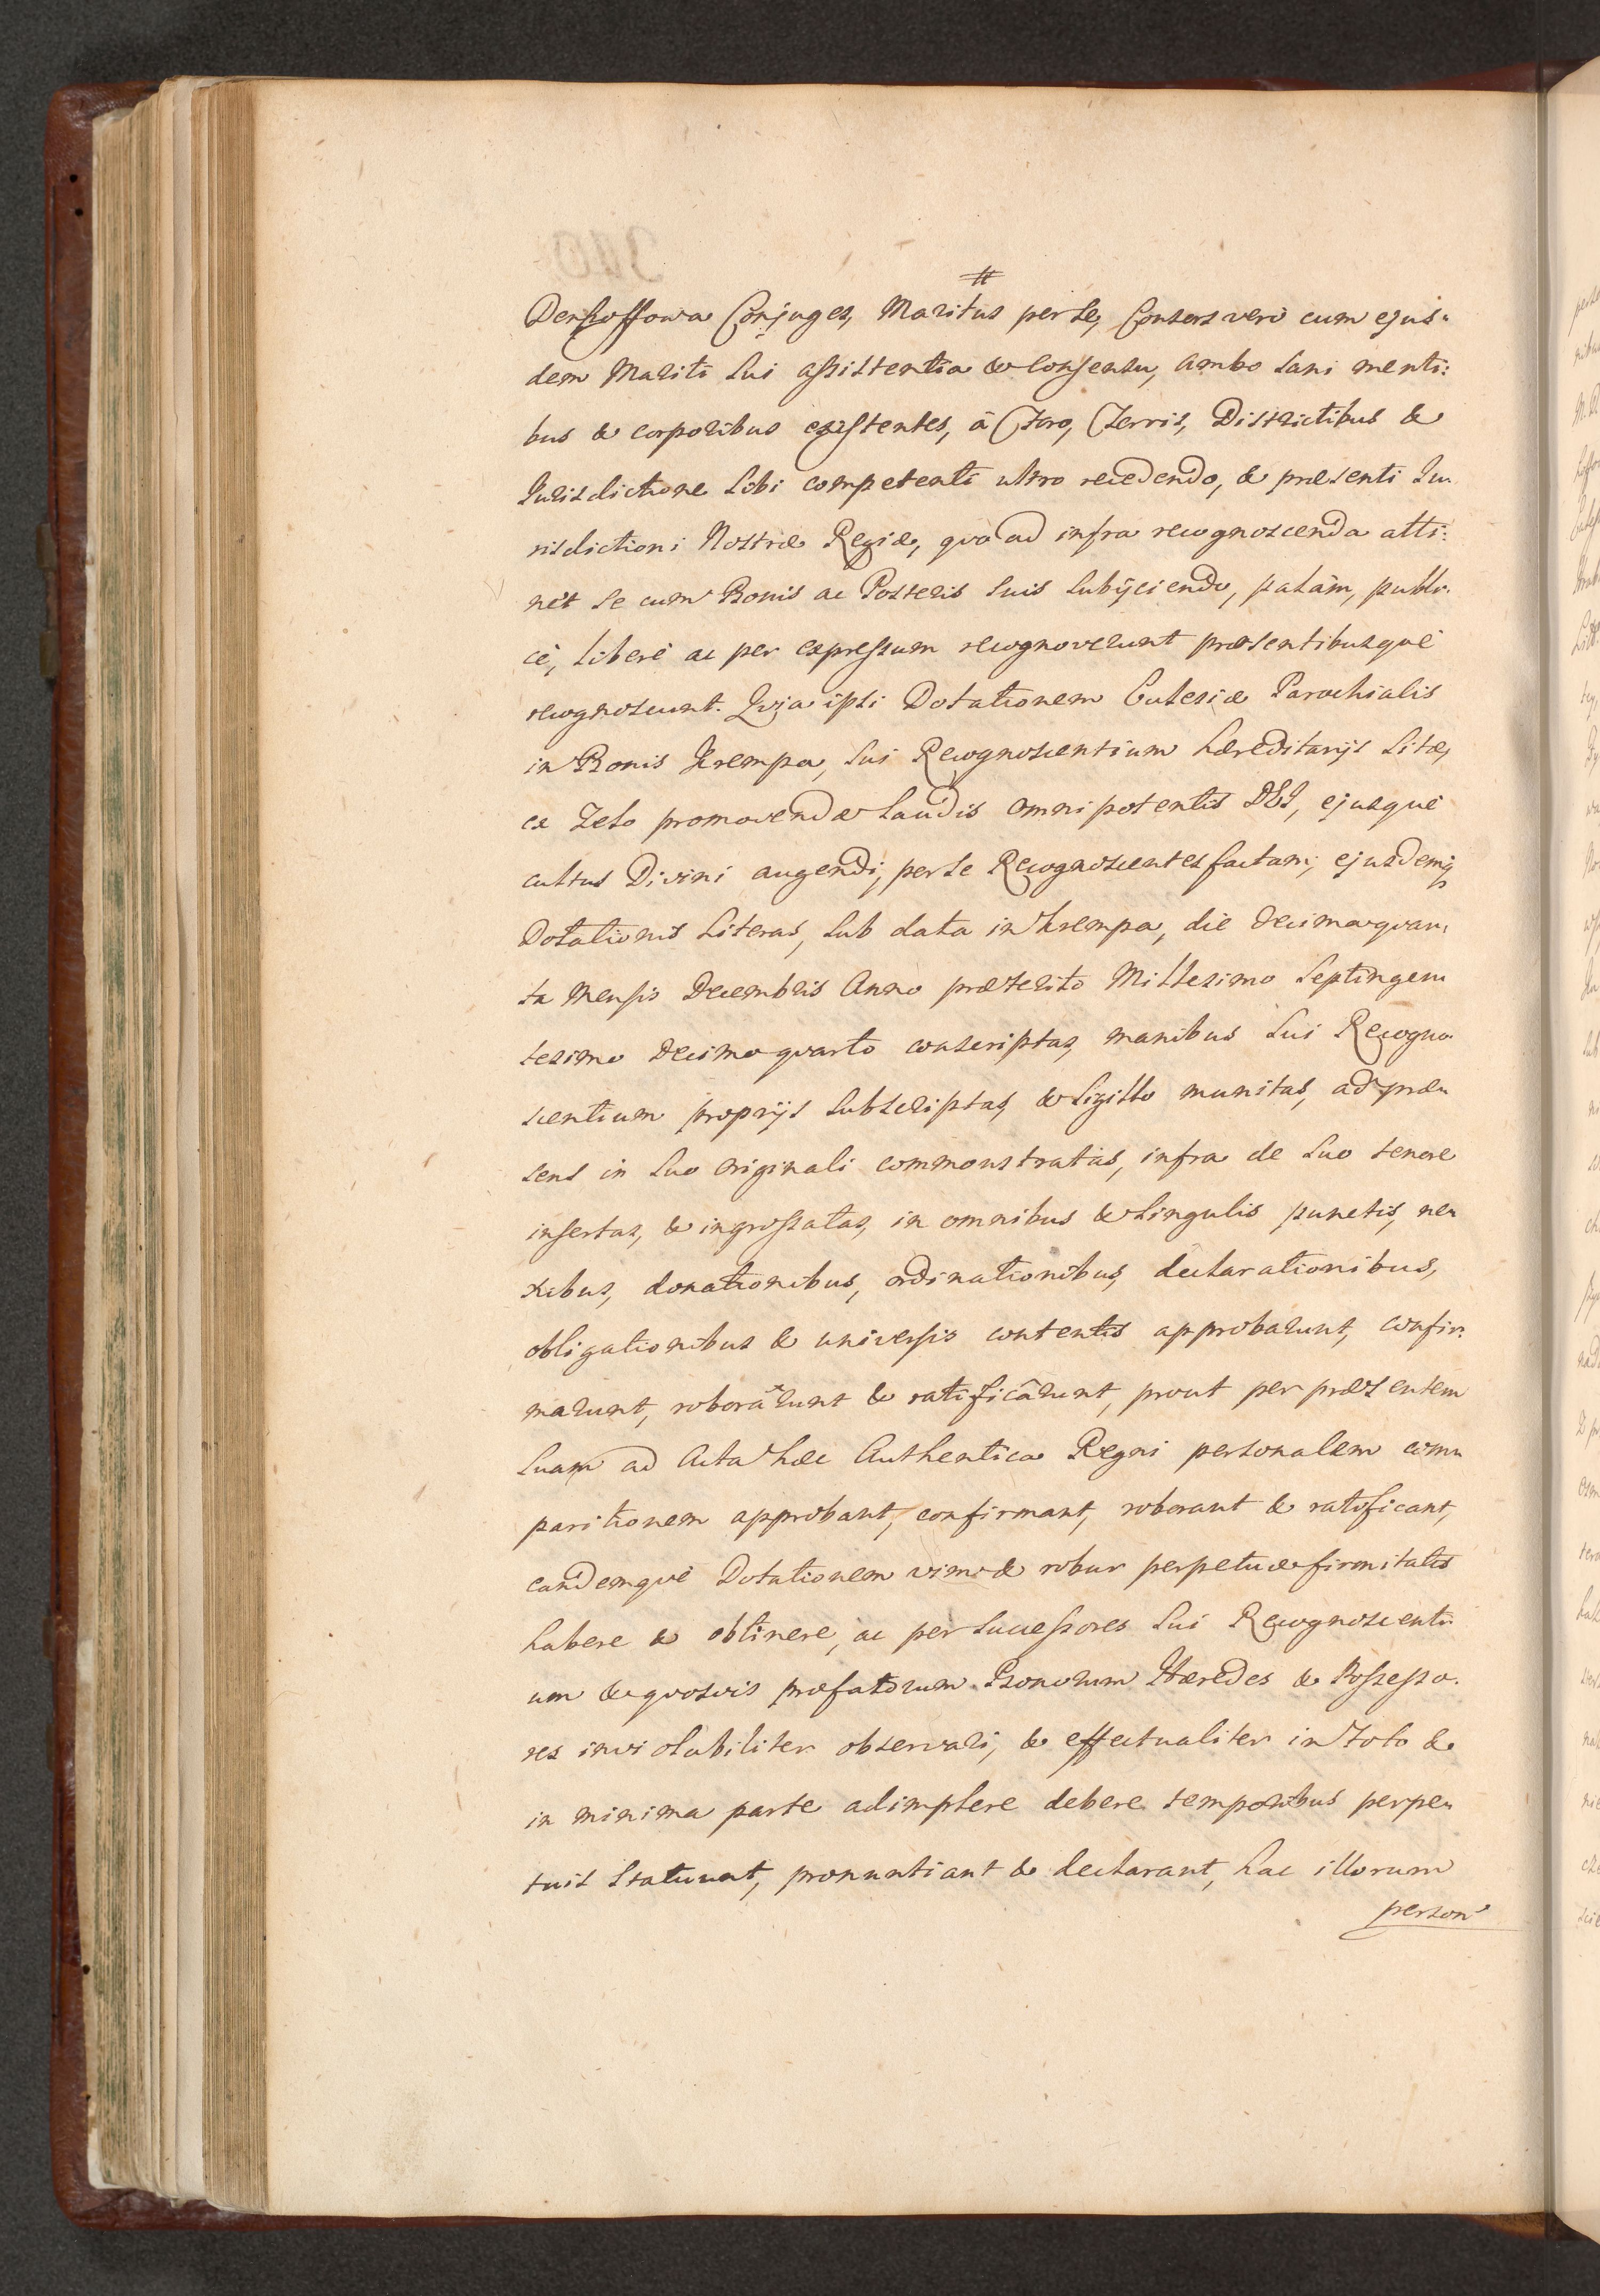 #
Denhoffowa Conjuges, Maritus per se, Consors verò cum ejus-
dem Mariti sui assistentia & consensu, ambo sani menti:
bus & corporibus existentes, â Foro, Terris, Districtibus &
Jurisdictione sibi competenti ultro recedendo, & præsenti Ju-
risdictioni Nostræ Regiæ, qvo ad infra recognoscenda atti:
net se cum Bonis ac Posteris suis subijciendo, palàm, publi-
cè, liberè ac per expressum recognoverunt præsentibusquè
recognoscunt. Qvia ipsi Dotationem Ecclesiæ Parochialis
in Bonis Krempa, sui Recognoscentium hæreditarijs sitæ,
ex Zelo promovendæ laudis omnipotentis DEI, ejusquè
cultus Divini augendi, per se Recognoscentes factam, ejusdemq
Dotationis Literas, sub data in Krempa, die decima qvar-
ta Mensis Decembris Anno præterito Millesimo Septingen
tesimo decimo qvarto conscriptas, manibus sui Recogno-
scentium proprijs subscriptas, & Sigillo munitas, ad præ-
sens in suo originali commonstratas, infra de suo tenore
insertas, & ingrossatas, in omnibus & singulis punctis, ne-
xibus, donationibus, ordinationibus, declarationibus,
obligationibus & universis contentis approbarunt, confir-
marunt, roborârunt & ratificârunt, prout per præsentem
suam ad Acta hæc Authentica Regni personalem com-
paritionem approbant, confirmant, roborant & ratificant,
eandemquè Dotationem vim & robur perpetuæ firmitatis
habere & obtinere, ac per successores sui Recognoscenti-
um & qvosvis præfatorum Bonorum Hæredes & Possesso-
res inviolabiliter observari, & effectualiter in toto &
in minima parte adimplere debere temporibus perpe-
tuis statuunt, pronuntiant & declarant, hac illorum
person